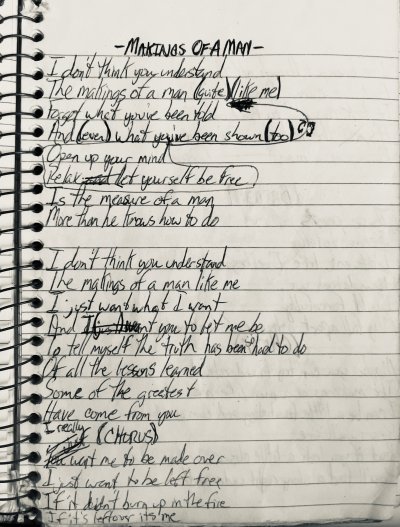 -MAKINGS OF A MAN-
I don't think you understand
The makings of a man (quite)(like me)
Forget what you've been told
And (even) what you've been shown (too)
Open up your mind
Relax let yourself be free
Is the measure of a man
More than he knows how to do
I don't think you understand
The makings of a man like me
I just want what I want
And I want you to let me be
To tell myself the truth has been hard to do
Of all the lessons learned
Some of the greatest
Have come from you
I really
(CHORUS)
You want me to be made over
I just want to be left free
If it didn't burn up in the fire
If it's leftover it's me